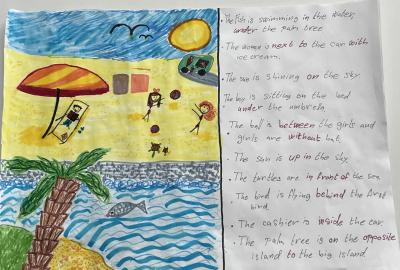 • The fish is swimming in the water,
under the palm tree
• The woman is next to the car with
ice cream.
• The sun is shining on the sky
The boy is sitting on the bed
under the umbrella
The ball is between the girls and
• girls are without hat.
• The sun is up in the sky.
The turtles are in front of the sea.
• The bird is flying behind the first
bird.
• The cashier is inside the car
• The palm tree is on the opposite
island to the big island